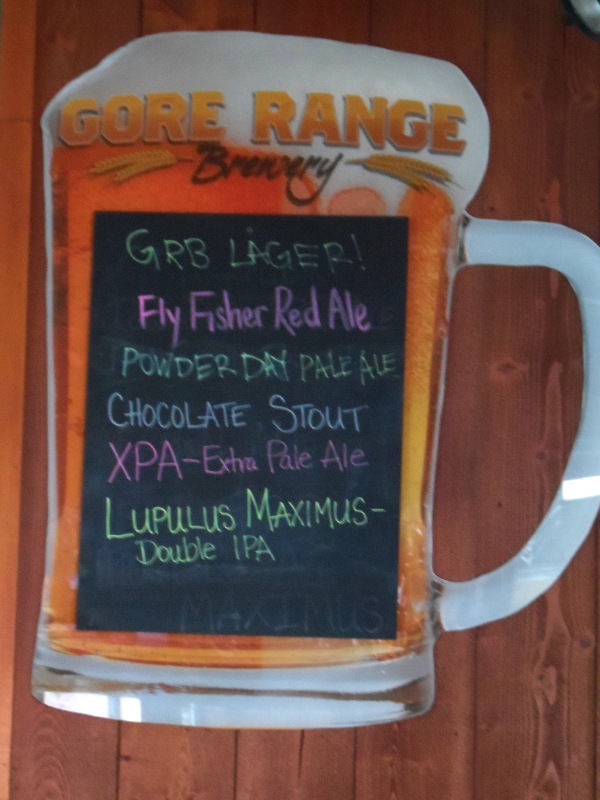 GORE RANGE
Brewery
GRB LAGER!
Fly Fisher Red Ale
POWDER DAY PALE ALE
CHOCOLATE STOUT
XPA-Extra Pale Ale
LUPULUS MAXIMUS-
Double IPA
MAXIMUS